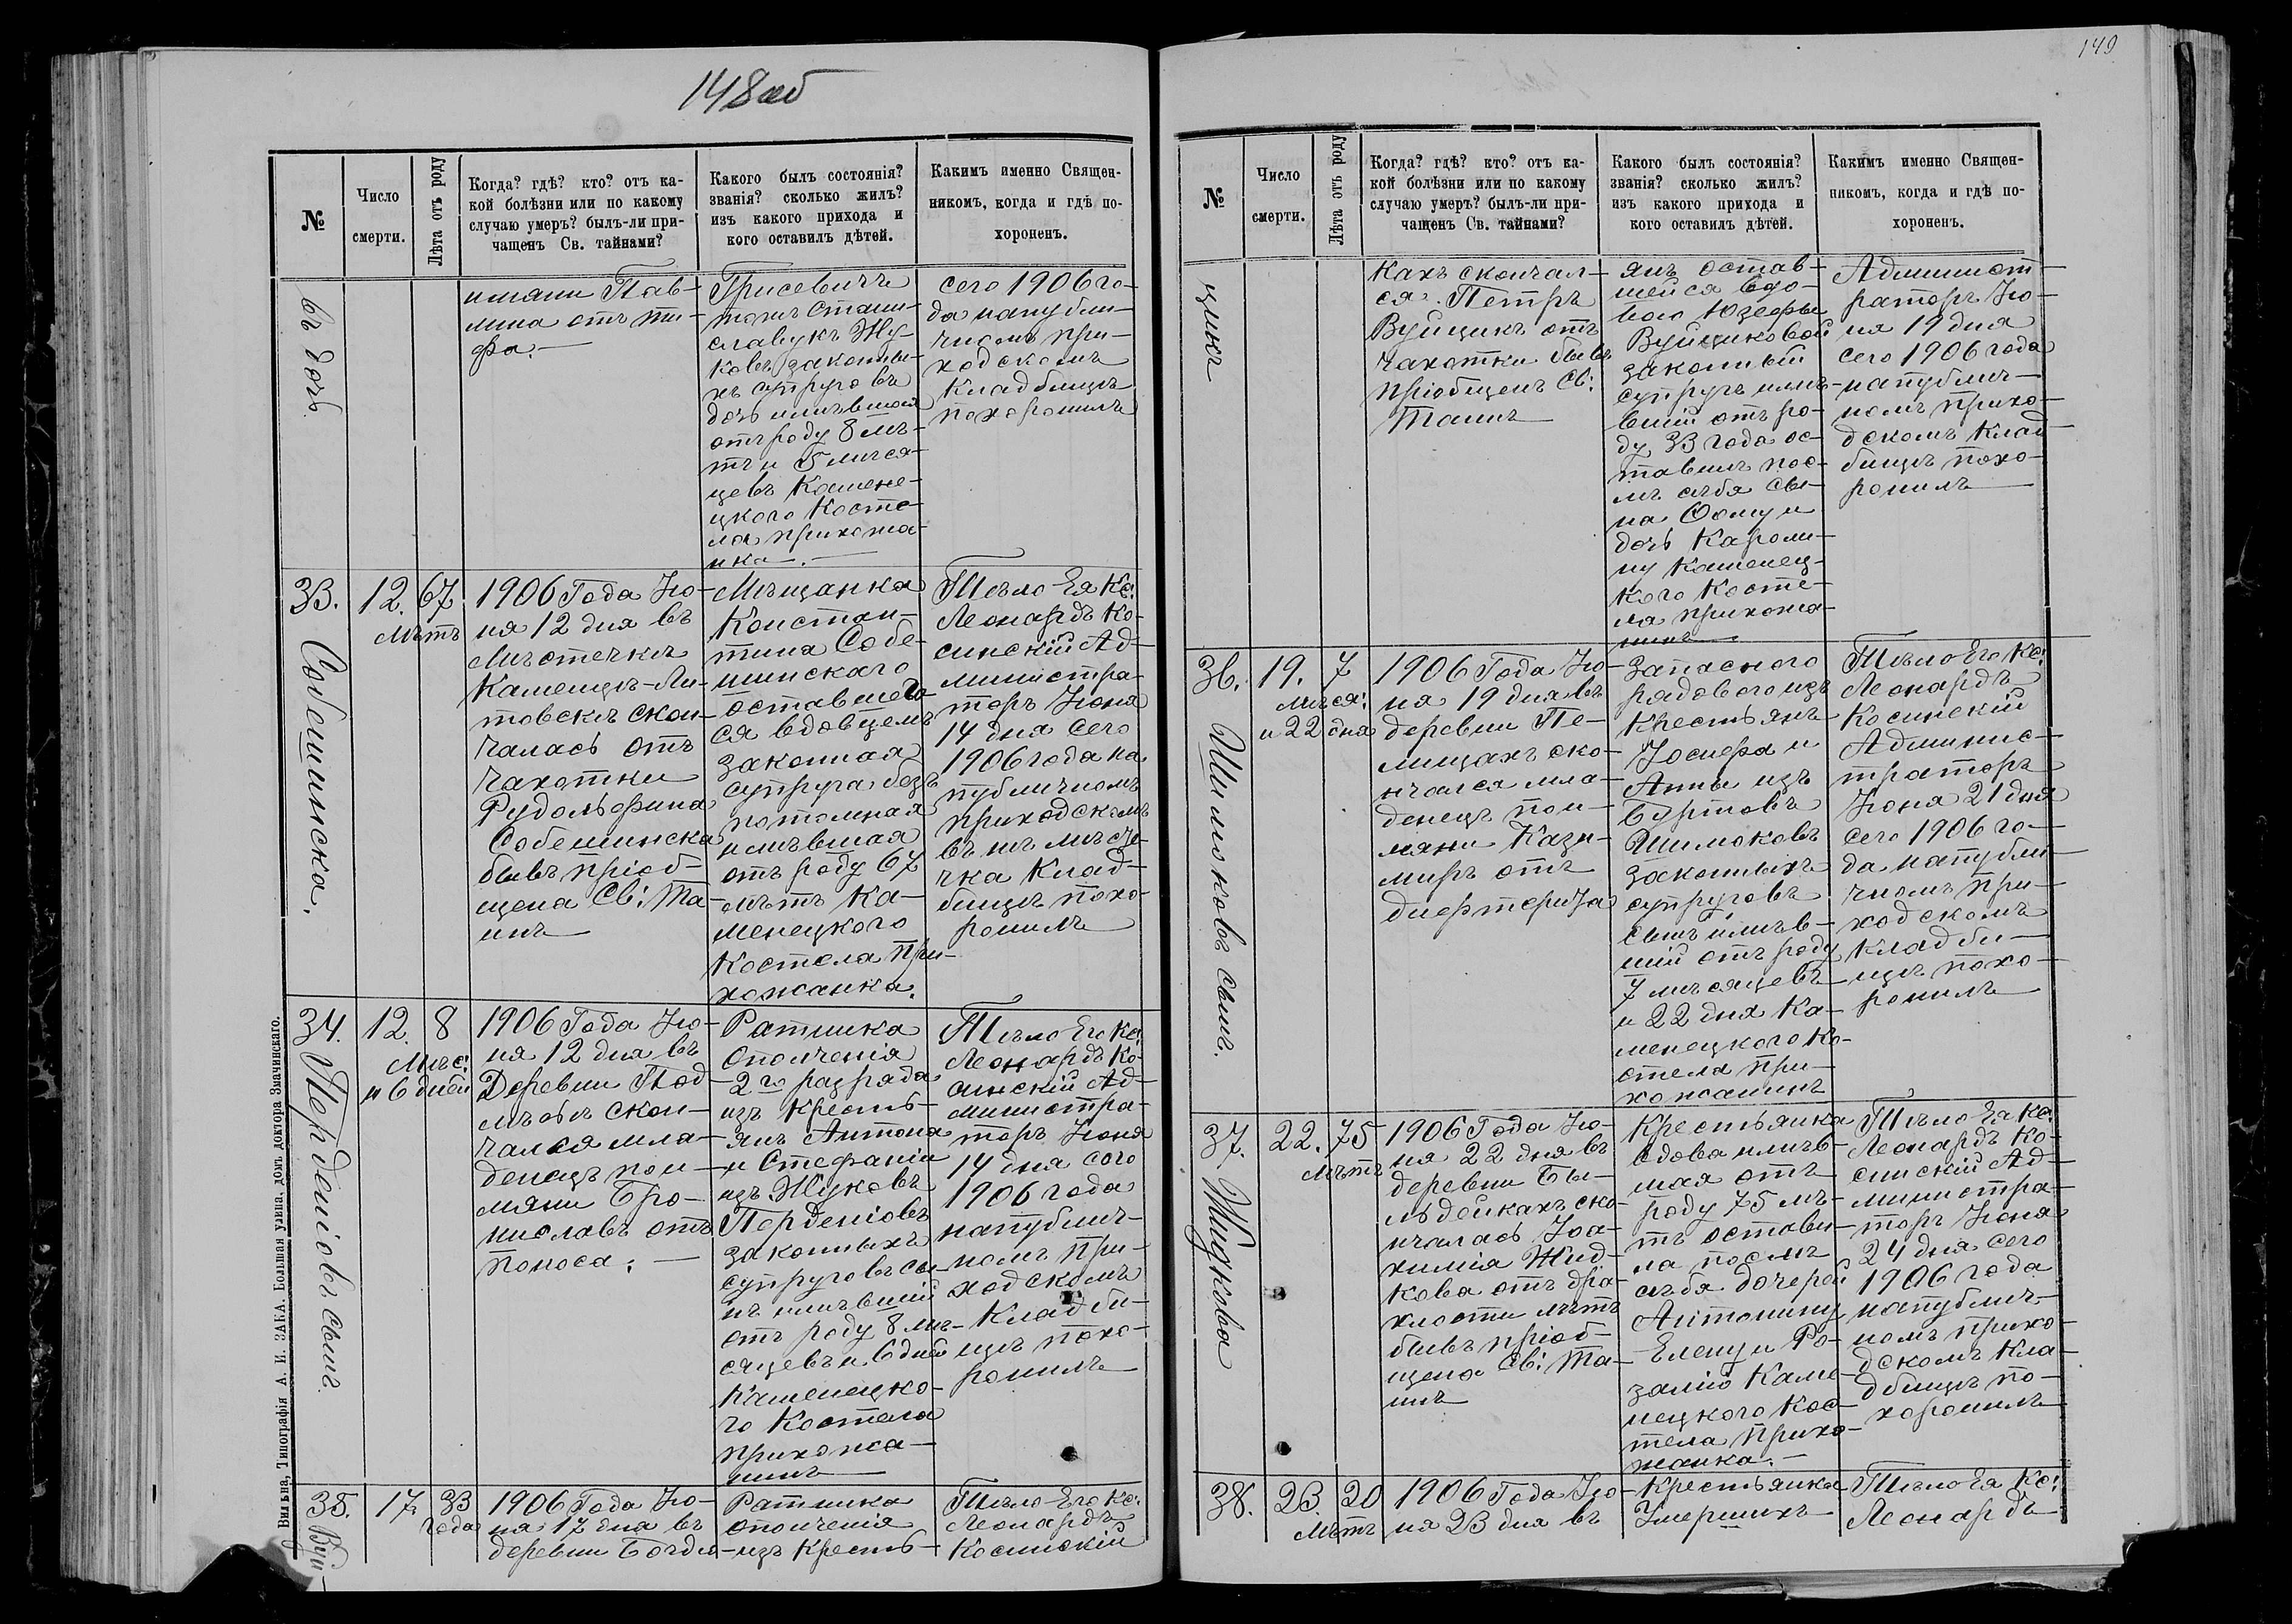 148об
№
Число
смерти.
Лѣта отъ роду
Когда? гдѣ? кто? отъ ка-
кой болѣзни или по какому
случаю умеръ? былъ-ли при-
чащенъ Св. тайнами?
Какого былъ состоянія?
званія? сколько жилъ?
изъ какого прихода и
кого оставилъ дѣтей.
Какимъ именно Священ-
никомъ, когда и гдѣ по-
хороненъ.
въ дочь
имани Пав-
лина отъ ти-
фа.—
Грисевичъ
Стани-
славукъ Жу-
ковъ законны-
хъ супруговъ
дочь имѣвшая
отъ роду 8 лѣ-
тъ и 5 мѣся-
цевъ Камене-
цкого Косте-
ла прихожа-
нка.—
сего 1906 го-
да напубли-
чномъ при-
ходскомъ
Кладбищѣ
похоронилъ
33.
Собешинска.
12.
67
Лѣтъ
1906 Года Iю-
ня 12 дня въ
Мѣстечкѣ
Каменцѣ-Ли-
товскѣ скон-
чалась отъ
чахотки
Рудольфина
Собешинска
бывъ пріоб-
щена Св: Та-
инъ
Мѣщанка
Констан-
тина Собе-
шинскаго
оставшего-
ся вдовцемъ
законная
супруга без
потомная
имѣвшая
отъ роду 67
лѣтъ Ка-
менецкого
Костела При-
хожанка.
Тѣло Ея Кс:
Леонардъ Ко-
синскій Ад-
министра-
торъ Iюня
14 дня сего
1906 года на
публичномъ
приходскомъ
въ мѣсте-
чка Клад-
бищѣ похо-
ронилъ
34.
Перденіовъ сынъ.
12.
8
Мѣс:
и 6 дней
1906 Года Iю-
ня 12 дня въ
Деревни Под-
скон-
чался мла-
денецъ пои-
мяни Бро-
ниславъ отъ
поноса. —
Ратника
Ополченія
2го разряда
изъ кресть-
янъ Антона
и Стефаніи
изъ Жуковъ
Перденіовъ
законныхъ
супруговъ сы-
нъ имѣвшій
отъ роду 8 мѣ-
сяцевъ и 6 дней
Каменецко-
го Костела
прихожа-
нинъ
Тѣло Его Кс:
Леонардъ Ко-
синскій Ад-
министра-
торъ Iюня
14 дня сого
1906 года
напублич-
номъ при-
ходскомъ
Кладби-
щѣ похо-
ронилъ
35.
Вуй-
17.
33
Года
1906 Года Iю-
ня 17 дня въ
деревни Богдю-
Ратника
ополченія
изъ Кресть-
Тѣло Его Кс:
Леонардъ
Косинскій
Вильна, Типографія А. И. ЗАКА. Большая улица, домъ доктора Змачинскаго.
149
№
Число
смерти.
Лѣта отъ роду
Когда? гдѣ? кто? отъ ка-
кой болѣзни или по какому
случаю умеръ? былъ-ли при-
чащенъ Св. тайнами?
Какого былъ состоянія?
званія? сколько жилъ?
изъ какого прихода и
кого оставилъ дѣтей.
Какимъ именно Священ-
никомъ, когда и гдѣ по-
хороненъ.
щикъ
кахъ скончал-
ся. Петръ
Вуйщикъ отъ
чахотки бывъ
пріобщенъ Св:
Таинъ
янъ остав-
шейся вдо-
вою Юзефы
Вуйщиковой
законный
супругъ имѣ-
вшій отъ ро-
ду 33 года ос-
тавилъ пос-
лѣ себя сы-
на Фому и
дочь Кароли-
ну Каменец-
кого Косте-
ла прихожа-
нинъ
Админист-
раторъ Iю-
ня 19 дня
сего 1906 года
напублич-
номъ прихо-
дскомъ Клад-
бищѣ похо-
ронилъ
36.
Шилюковъ сынъ.
19.
7
мѣся:
и 22 дня
1906 Года Iю-
ня 19 дня въ
деревни Пе-
лищахъ ско-
нчался мла-
денецъ пои-
мяни Кази-
миръ отъ
дифтерита
Запасного
рядового изъ
Крестьянъ
Iосифа и
Анны изъ
Бартовъ
Шилюковъ
законныхъ
супруговъ
сынъ имѣв-
шій отъ роду
7 мѣсяцевъ
и 22 дня Ка-
менецкого Ко-
стела при-
хожанинъ
Тѣло Его Кс:
Леонардъ
Косинскій
Админис-
траторъ
Iюня 21 дня
сего 1906 го-
да напубли-
чномъ при-
ходскомъ
кладби-
щѣ похо-
ронилъ
37.
Жидкова
22.
75
Лѣтъ
1906 Года Iю-
ня 22 дня въ
деревни Бы-
льдейкахъ ско-
нчалась Iоа-
химія Жид-
кова отъ дря-
хлости лѣтъ
бывъ пріоб-
щена Св: Та-
инъ
Крестьянка
вдова имѣв-
шая отъ
роду 75 лѣ-
тъ остави-
ла послѣ
себя дочерей
Антонину
Елену и Ро-
залію Каме-
нецкого Кос-
тела Прихо-
жанка.—
Тѣло Ея Кс:
Леонардъ Ко-
синскій Ад-
министра-
торъ Iюня
24 дня сего
1906 года
напублич-
номъ прихо-
дскомъ Кла-
дбищѣ по-
хоронилъ
38.
23.
20
Лѣтъ
1906 Года Iю-
ня 23 дня въ
Крестьянка
Умершихъ
Тѣло Ея Кс:
Леонардъ